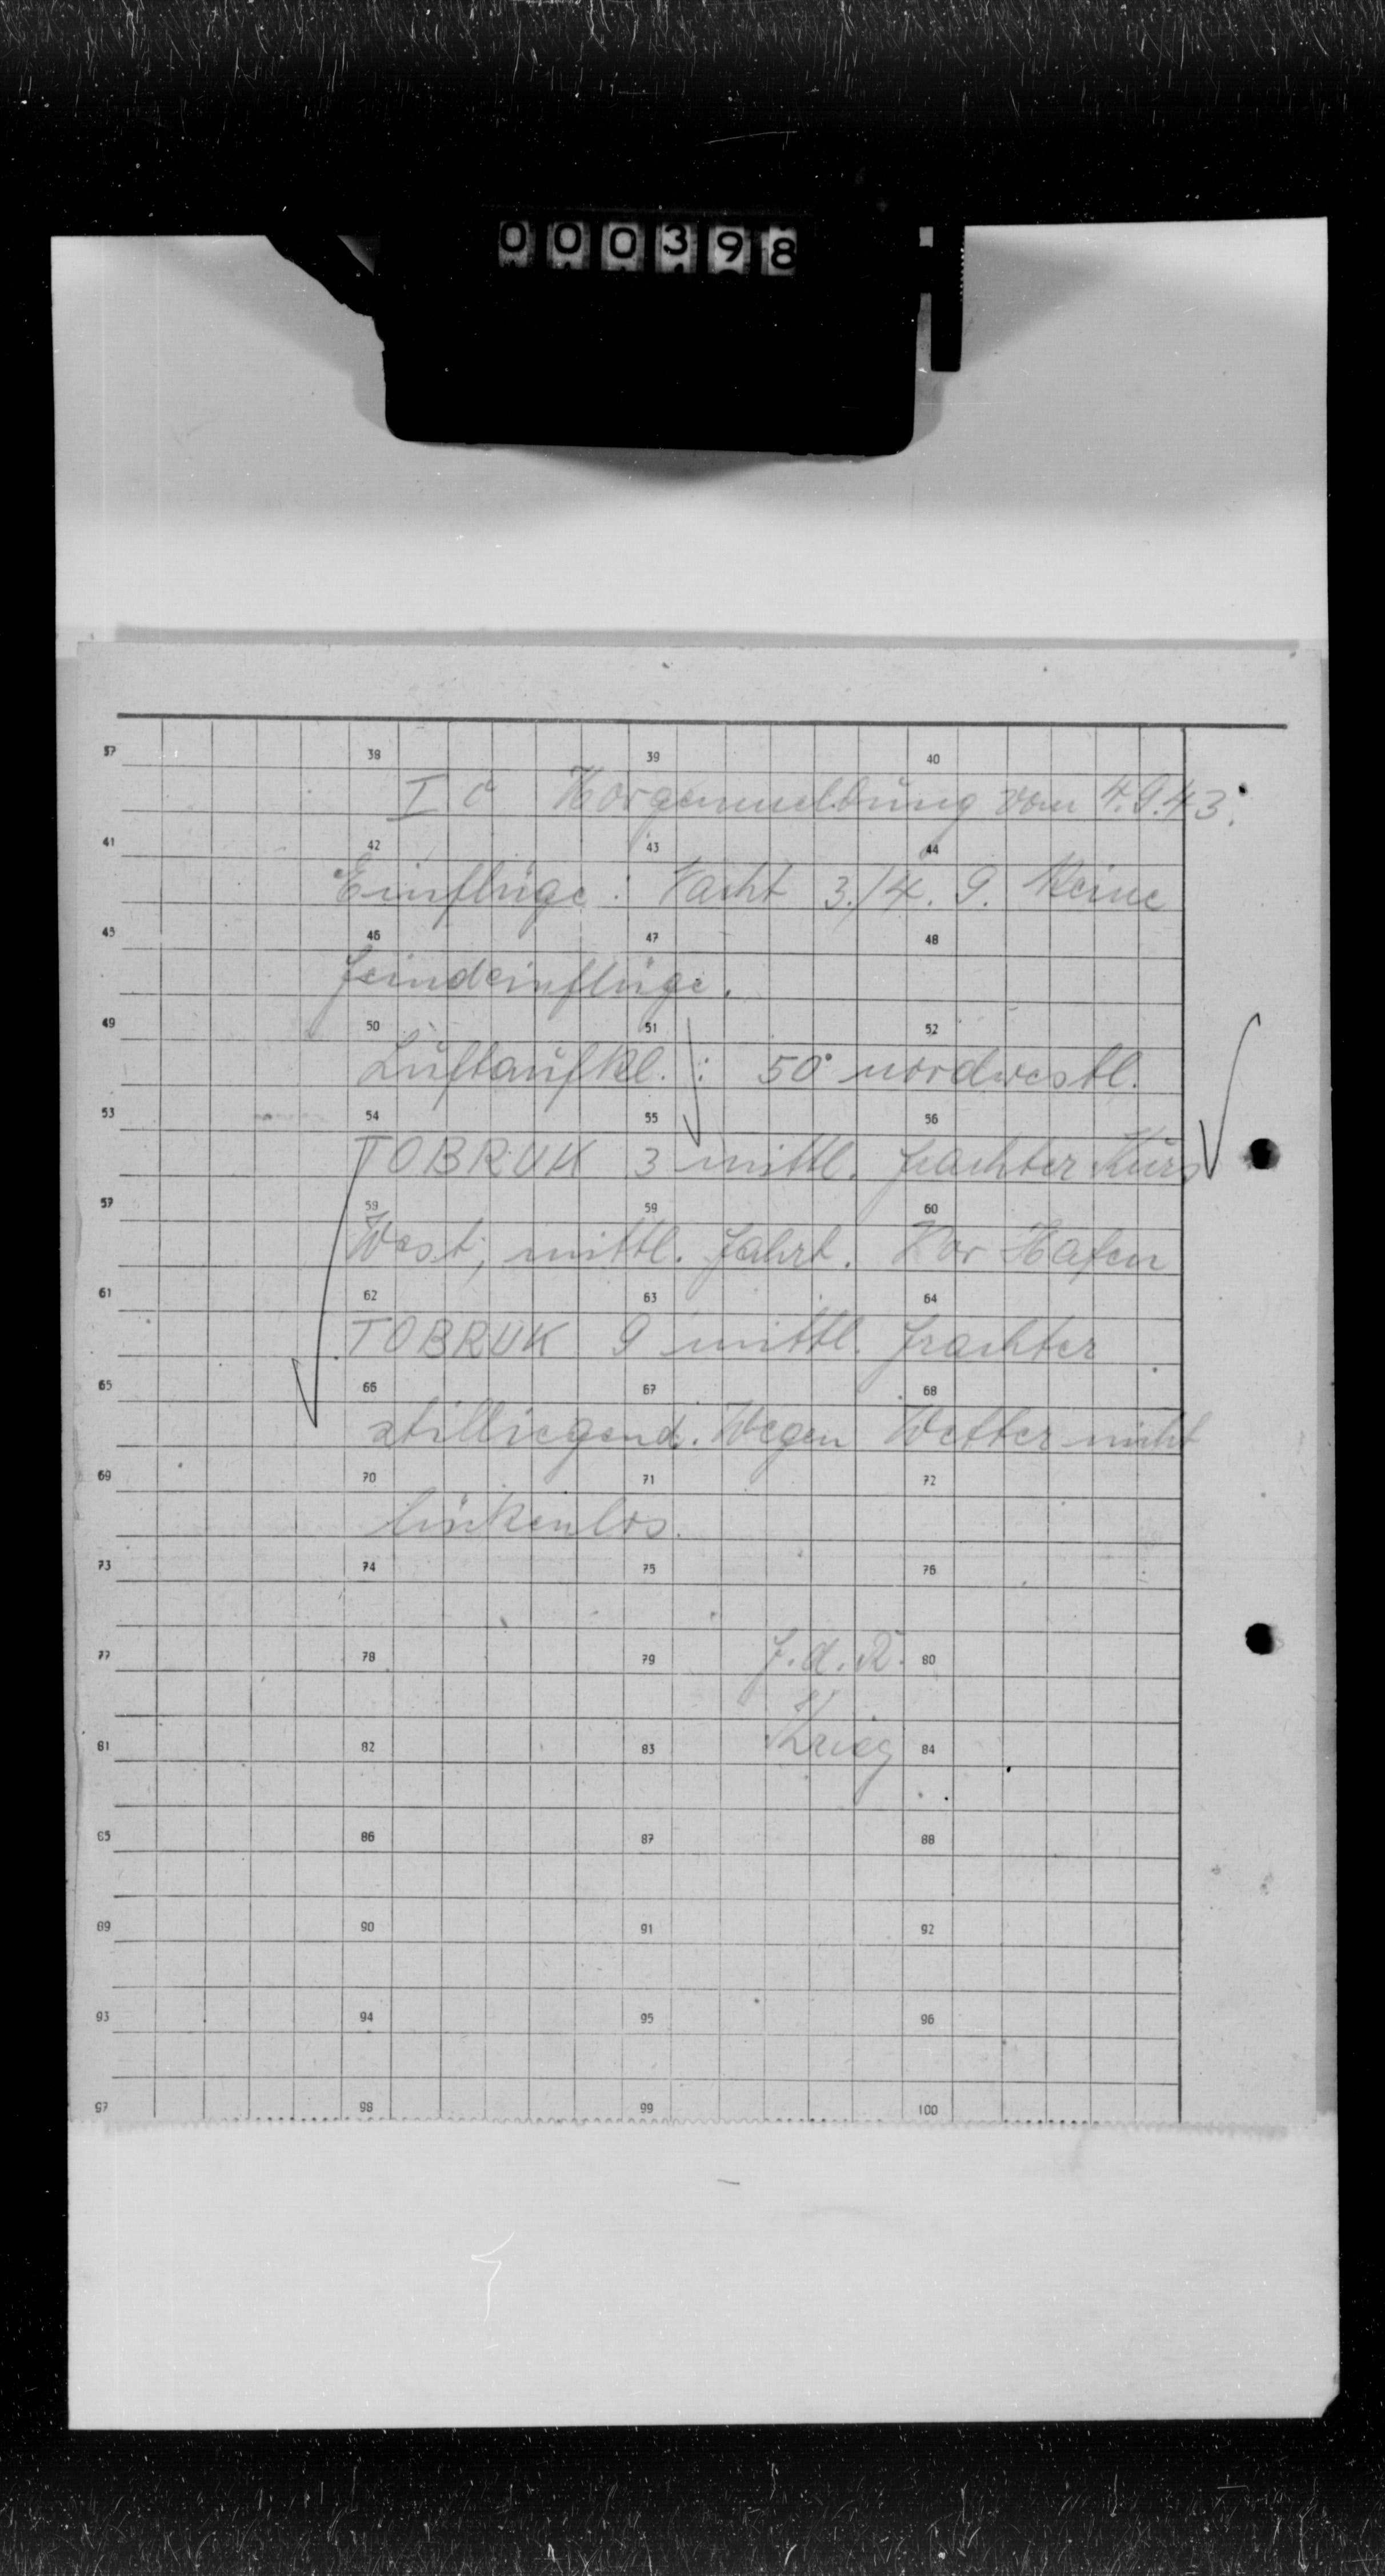 000398
37 38 39 40
I c Morgenmeldung vom 4.9.43.
41 42 43 44
Einflüge: Nacht 3./4. 9. Keine
45 46 47 48
Feindeinflüge.
49 50 51 52
Luftaufkl.: 50° nordwestl.
53 54 55 56
TOBRUK 3 mittl. Frachter Kurs
57 58 59 60
West, mittl. Fahrt. Vor Hafen
61 62 63 64
TOBRUK 9 mittl. Frachter
65 66 67 68
stilliegend. Wegen Wetter nicht
69 70 71 72
lückenlos.
73 74 75 76
F.d.R.
77 78 79 80
Krieg
81 82 83 84
85 86 87 88
89 90 91 92
93 94 95 96
97 98 99 100